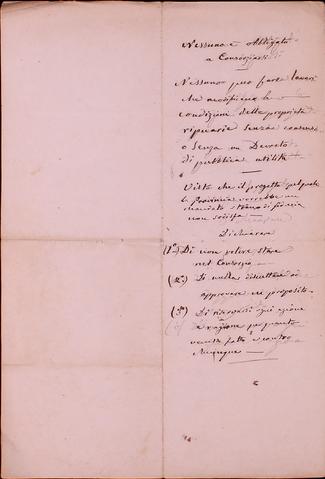 Nessuno è obbligato
a Consorziarsi
Nessuno può fare lavori
che modifichino le
condizioni delle proprietà
ripuarie senza consenso
o senza un Decreto
di pubblica utilità
Visto che il progetto pel quale
la Provincia vorrebbe un
mandato di fiducia
non
Dichiara
(1°) Di non volere stare
nel Consorzio
(2°) Di nulla discuttere od
approvare in proposito
(3°) Di riservarsi ogni azione
e ragione per quanto
venisse fatto contro